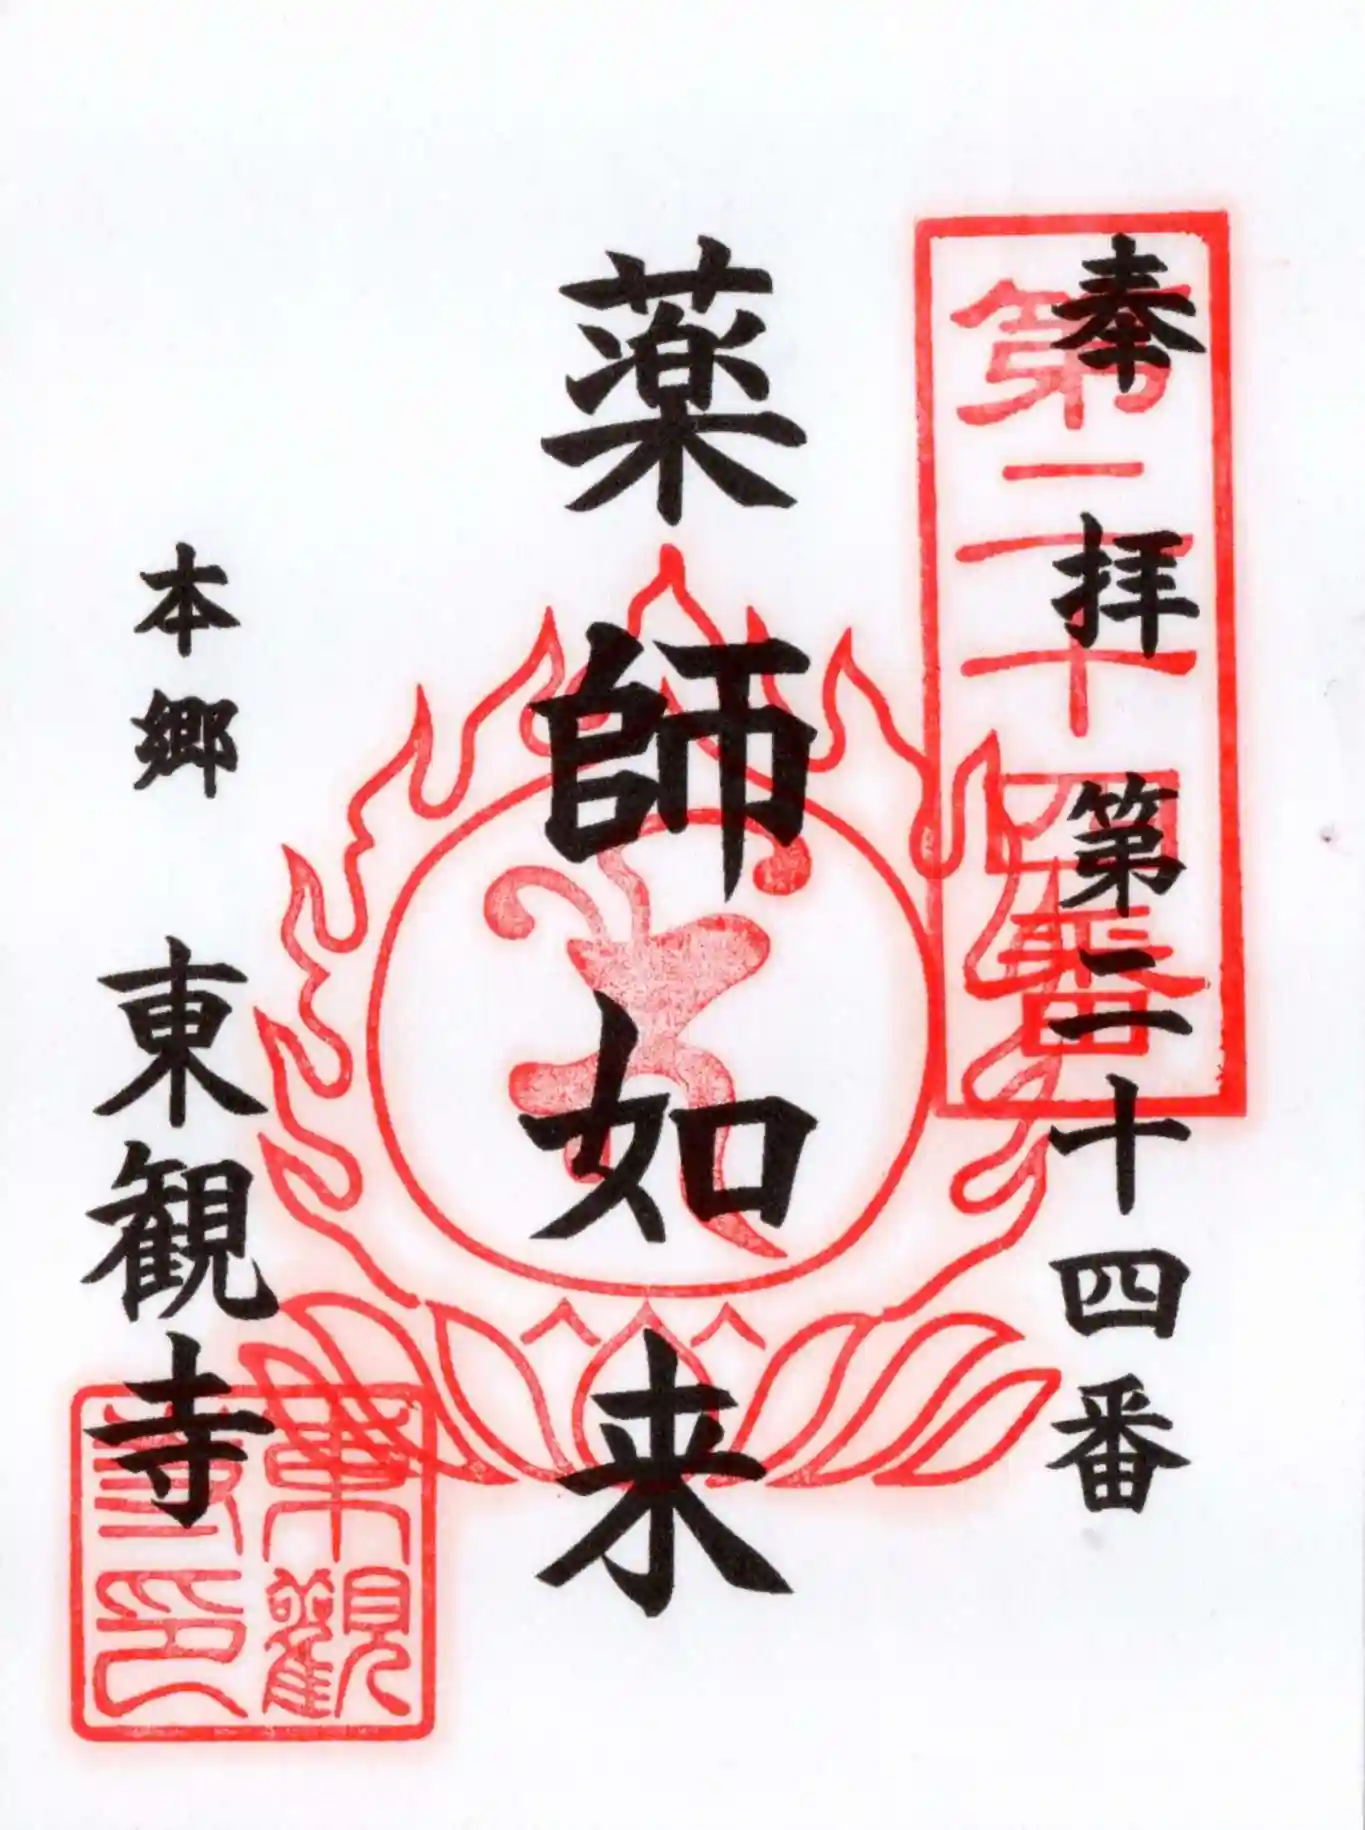 奉拝 第二十四番
第二十四番
薬師如来
本郷 東観寺
東觀寺印